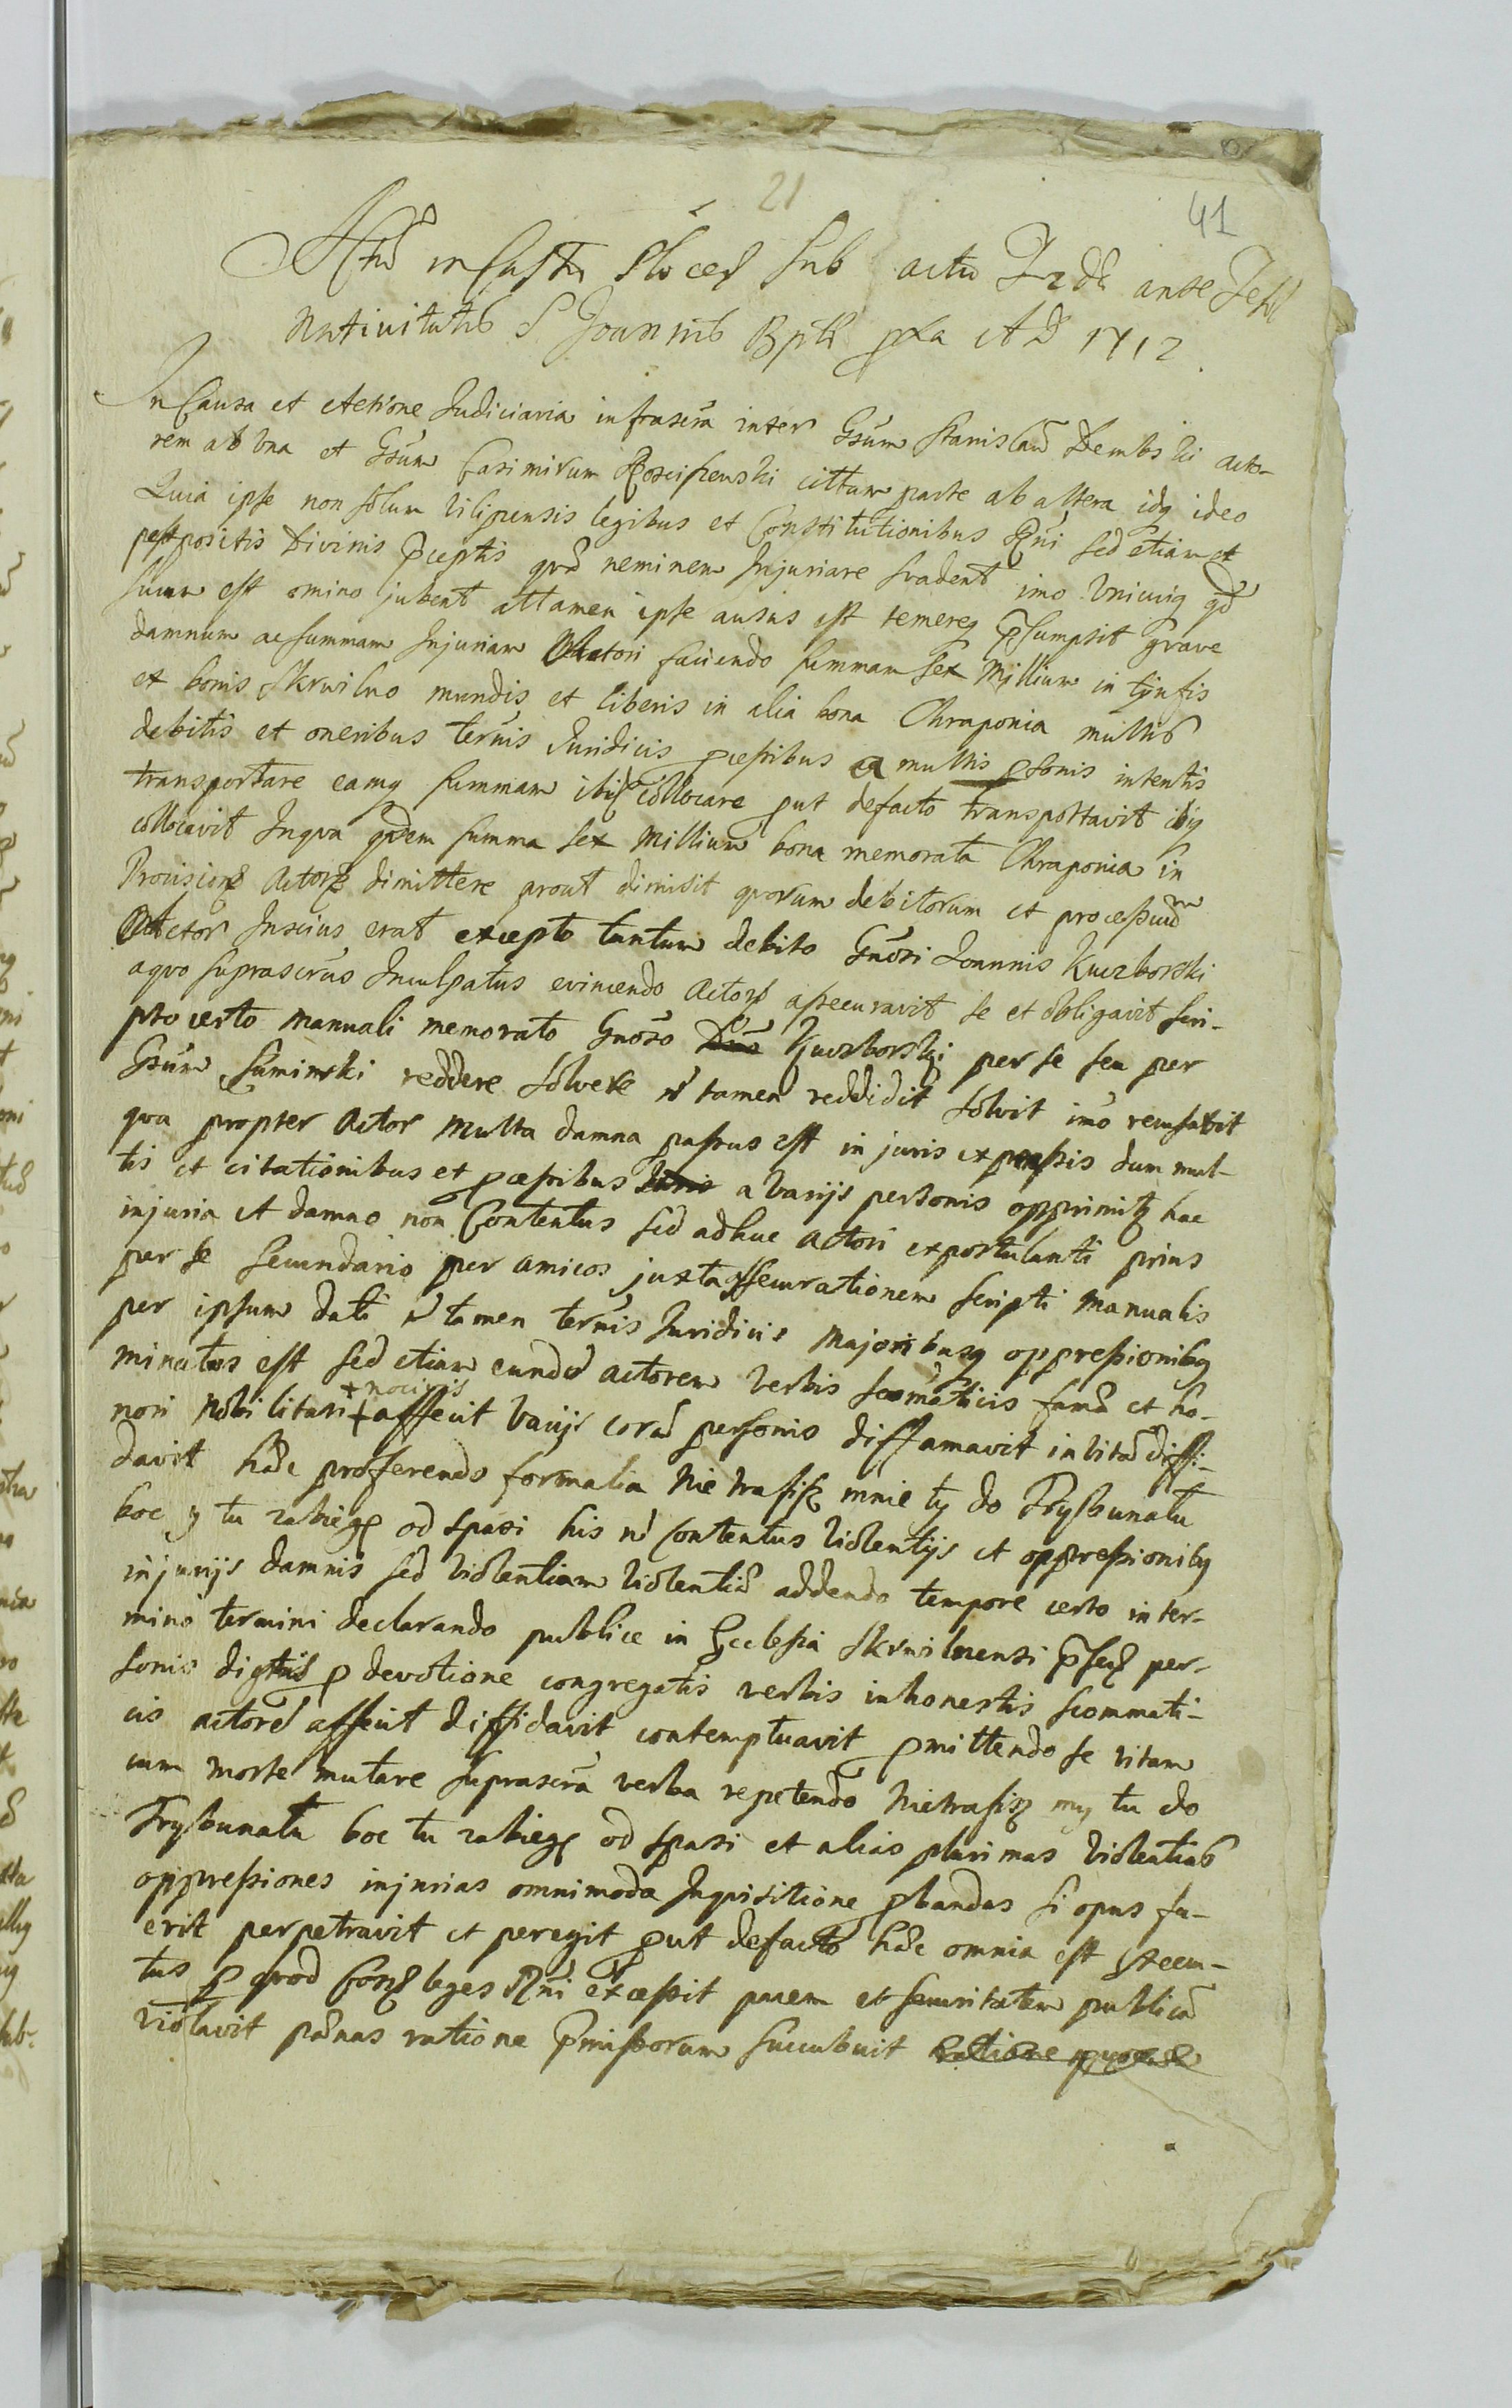 21
41
Actũ in Castro Plocen̄ sub actu Frdi ante Festũ
Nativitatis S Joannis Bptæ pxa A D 1712
In Causa et Actione Judiciaria infrascra inter Gsum Stanislaũ Dembski acto-
rem ab una et Gsum Casimirum Rosciszewski cittum parte ab altera idq ideo
Quia ipse non solum vilipensis legibus et Constitutionibus Rgni sed etiam et
postpositis Divinis Pceptis quæ neminem Injuriare svadent imo Unicuiq qd
suum est omino jubent attamen ipse ausus est temereq Psumpsit grave
damnum ac summam Injuriam Actori faciendo summam sex Millium in tynfis
ex bonis Skrwilno mundis et liberis in alia bona Chraponia multis
debitis et oneribus ternis Juridicis pcessibus a multis psonis intentis
transportare eamq summam ibid collocare put defacto transportavit ibiq
collocavit Inqva qdem summa sex Millium bona memorata Chraponia in
Provisionẽ Actori dimittere prout dimisit quorum debitorum et processuum
Actor Inscius erat excepto tantum debito Gnosi Joannis Kuczborski
aquo suprascrus Inculpatus evincendo Actorẽ assecuravit se et obligavit scri-
pto certo manuali memorato Gnoso Dno Kuczborski per se seu per
Gsum Suminski reddere solvere ñ tamen reddidit solvit imo recusavit
qva propter Actor multa damna passus est in juris expensis dum mul-
tis et citationibus et pcessibus Juris a varijs personis opprimitr hac
injuria et damno non Contentus sed adhuc actori expostulanti prius
per se secundario per amicos juxta assecurationem scripti manualis
per ipsum dati ñ tamen ternis Juridicis majoribusq oppressionibq
minatus est sed etiam eundẽ actorem verbis scommaticis famæ et ho-
nori Nobilitari + nocivis affecit varijs corã personis diffamavit in vitã diffi-
davit hæc proferendo formalia Nie trafisz mnie ty do Trybunału
boc y tu zabiegę od spasi his ñ Contentus violentijs et oppressionibq
injurijs damnis sed violentiam violentiæ addendo tempore certo inter-
mino termini declarando publice in Ecclesia Skrwilnensi Psen̄ per-
sonis dignis p devotione congregatis verbis inhonestis scommati-
cis actorẽ affecit diffidavit contemptuavit pmittendo se vitam
cum morte mutare suprascra verba repetendo Nietrafisz my tu do
Trybunału boc tu zabiegę od spasi et alias plurimas violentias
oppressiones injurias omnimoda Inqvisitione pbandas si opus fu-
erit perpetravit et peregit put defacto hæc omnia est execu-
tus p quod Cons leges Rgni excessit pacem et securitatem publicã
violavit pænas ratione Pmissorum succubuit